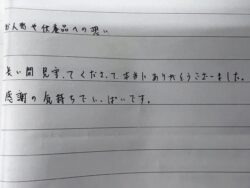 お人形や供養品への想い
長い間見守ってくださって本当にありがとうございました。
感謝の気持ちでいっぱいです。